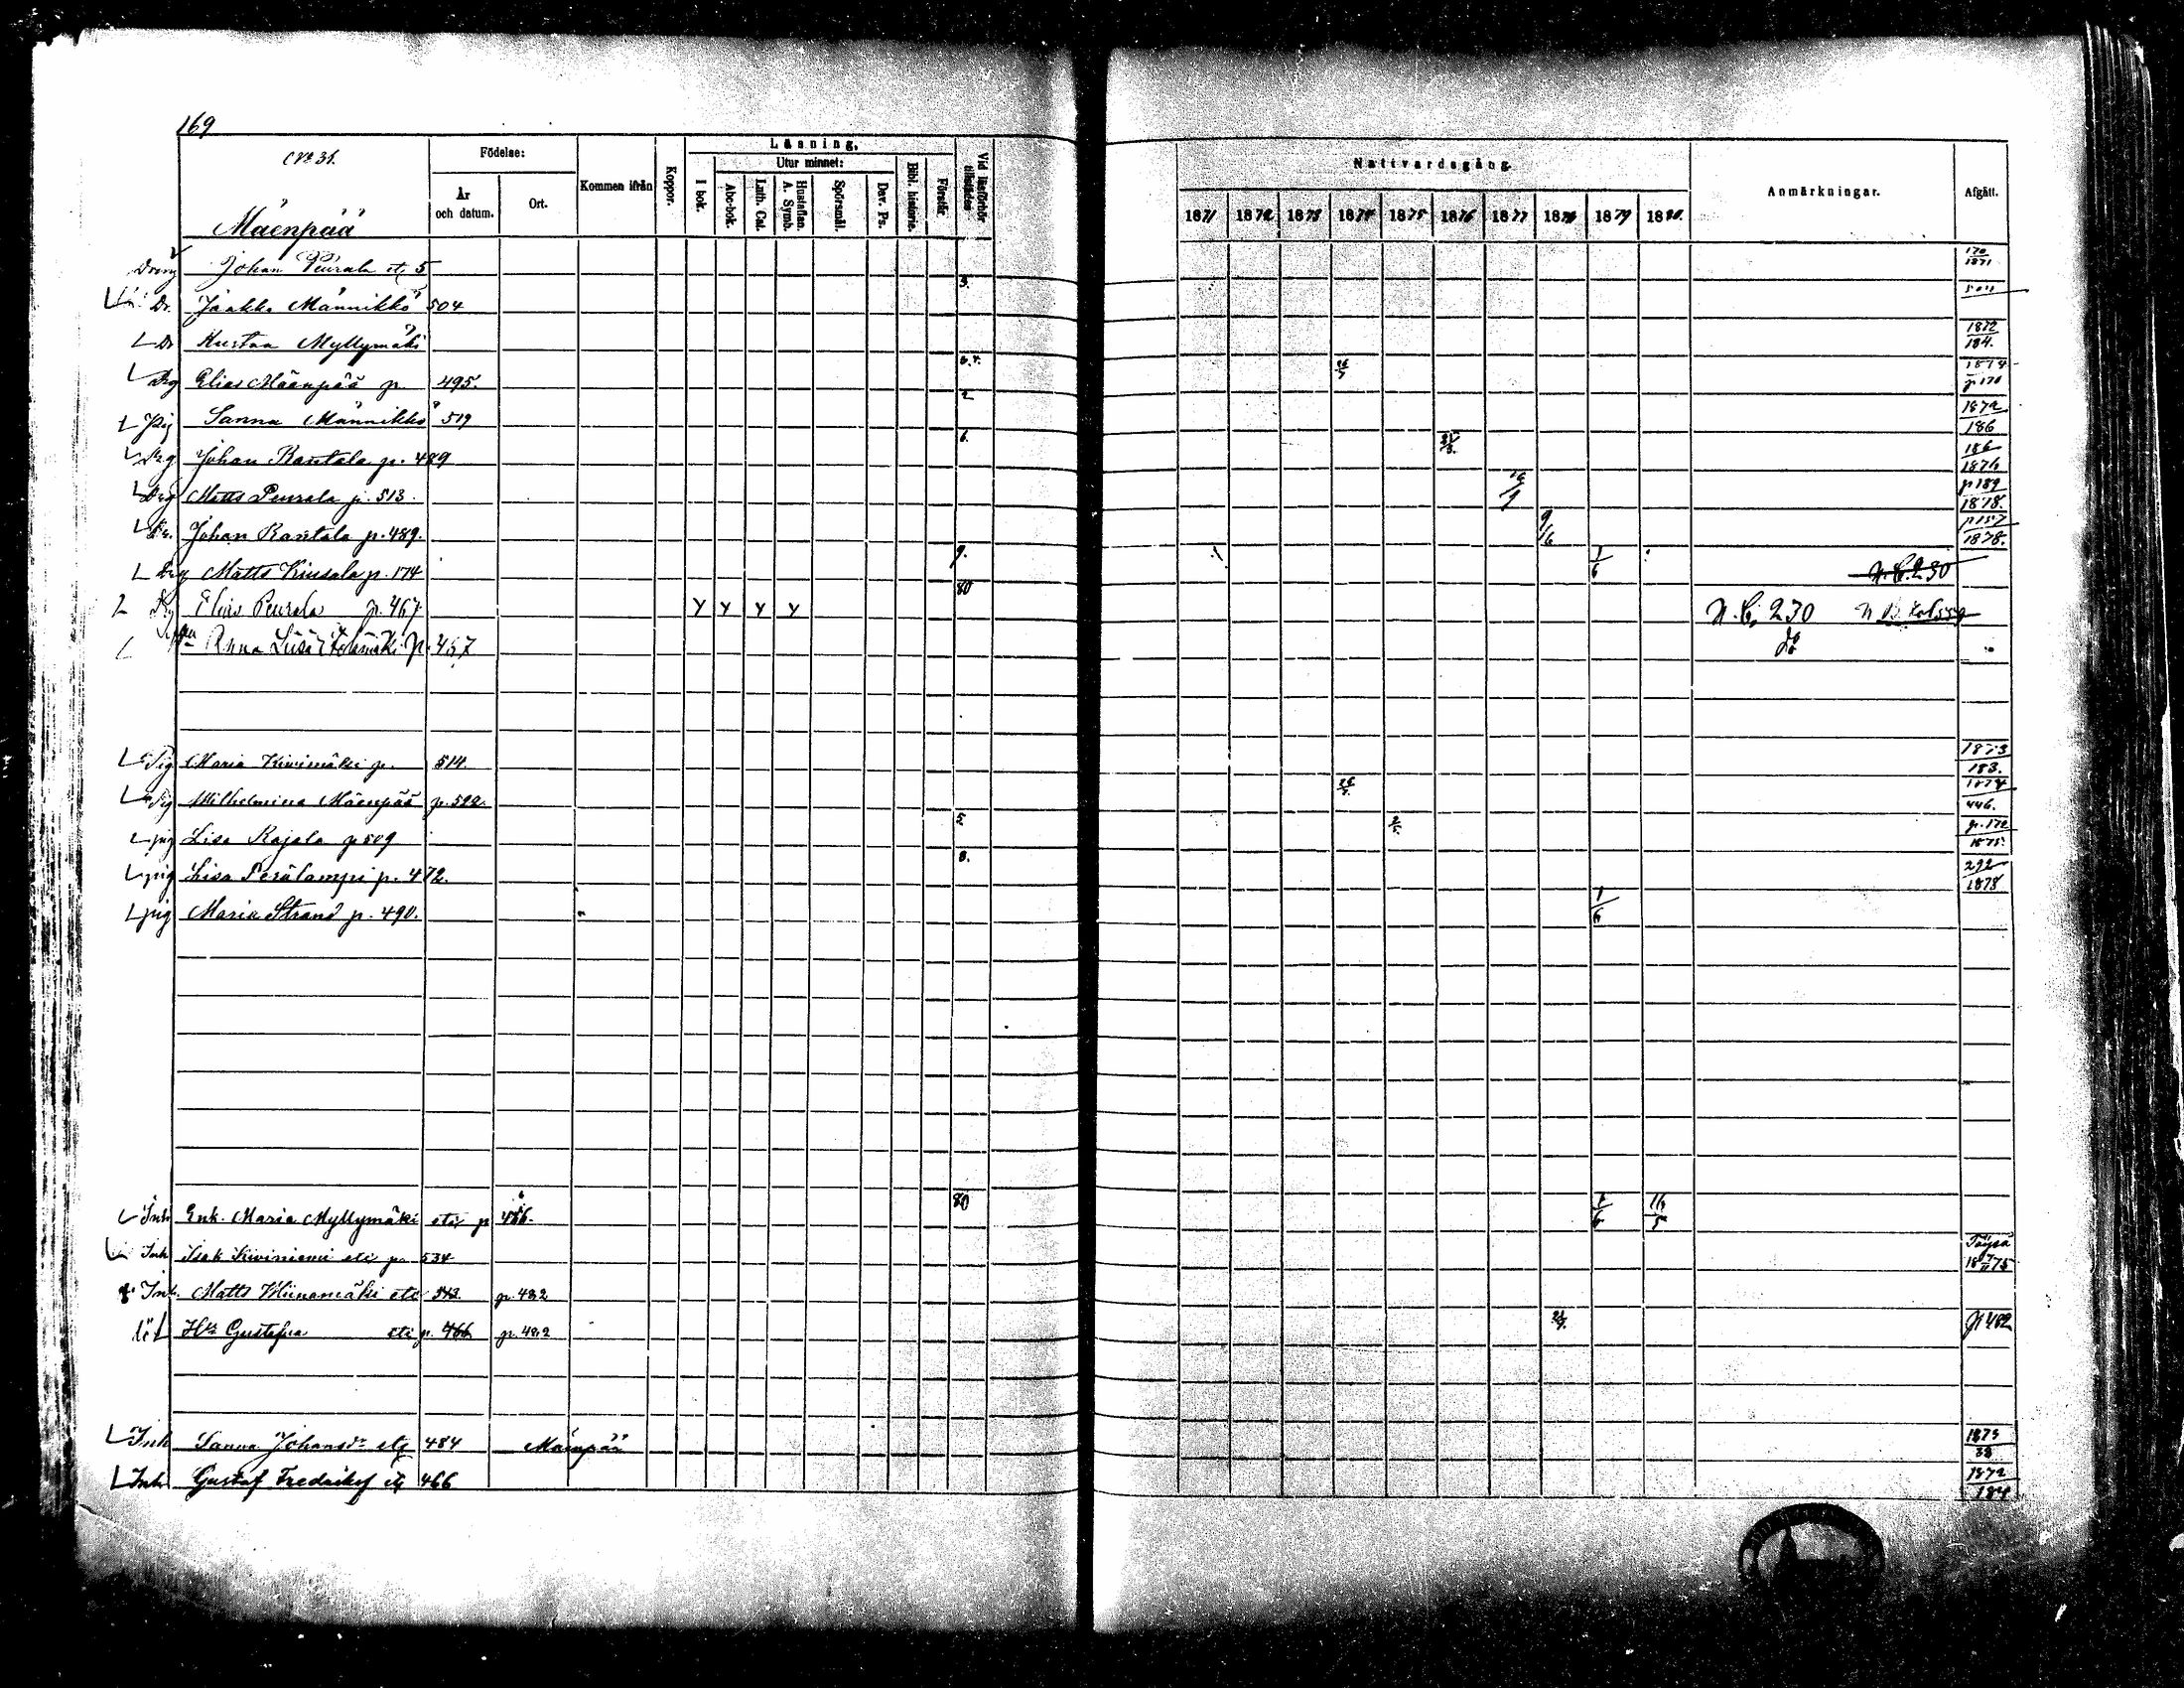 169
No 31.
Mäenpää
Födelse:
År och datum.
Ort.
Kommen ifrån
Koppor.
Läsning,
I bok.
Utur minnet:
Abc-bok.
Luth. Cat.
Hustaflan. A. Symb.
Spörsmål.
Dav. Ps.
Bibl. historie.
Förstår
Vid läsförhör tillstädes
Nattvardsgång.
1871 1872 1873 1874 1875 1876 1877 1878 1879 1880.
Anmärkningar.
Afgått.
Dreng Johan Peurala etc 5 170 1871
Dr. Jaakko Männikkö 504 3. 504
Dr Kustaa Myllymäki 1872 184.
Drg Elias Mäenpää p 495. 26/7 1874 p 170
Pig Sanna Männikkö 519 2 1872 186
Drg Johan Rantala p. 489 6. 186 1876
Drg Matts Peurala p. 513. p 189 1878.
Dr. Johan Rantala p. 489. 9/6 p 157 1878.
Drg Matts Kiusala p. 174 9. 1/6 N.B. 230
Drg Elias Peurala p. 467 80 Y Y Y Y N.B. 230
Anna Lisa p. 457 do
Pig Maria Kivimäki p. 514. 1873 183.
Pig Wilhelmina Mäenpää p. 522. 1874 446.
pig Lisa Rajala p 509 5 p. 172 1875.
pig Lisa Perälampi p. 472. 8. 292 1878
pig Maria Strand p. 490. 1/6
Inh Enk. Maria Myllymäki etc p 486. 80 1/6 16/5
Inh Isak Kiviniemi etc p. 534 Töysä 1875
Inh. Matts Kiinamäki etc 543. p. 482
Ha Gustafva etc p. 466 p. 482 p 482
Inh Sanna Johansdr etc 484 Mäenpää 1873 38
Inh Gustaf Fredriksf etc 466 1872 184